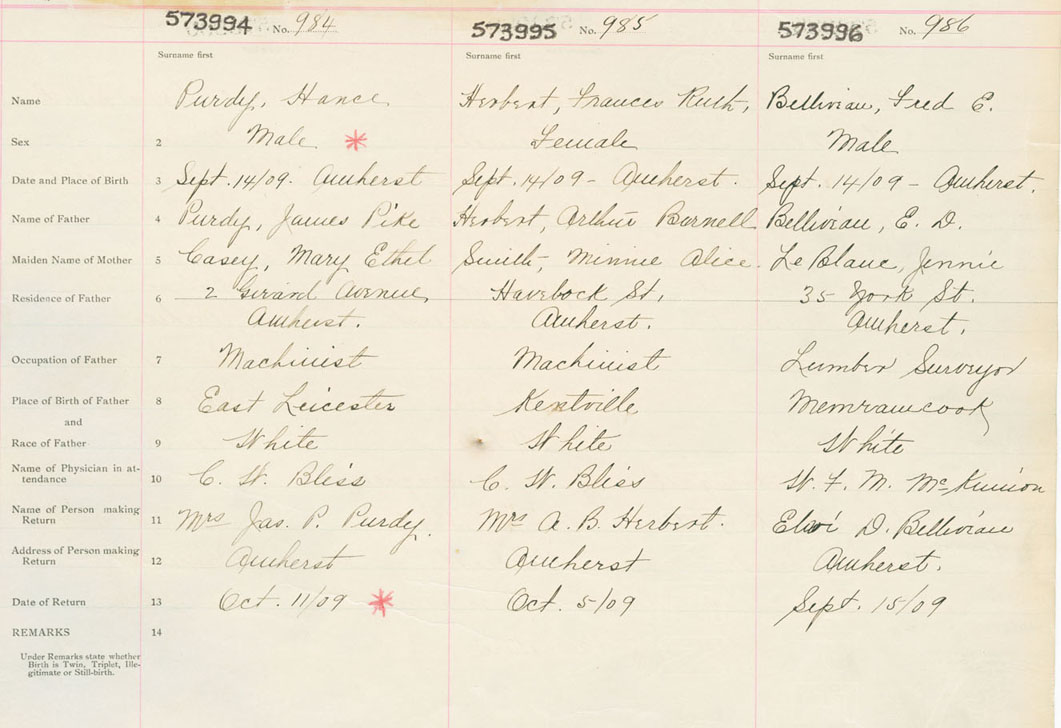 573994 No. 984 573995 No. 985 573996 No. 986
Surname first Surname first Surname first
Name Purdy, Hance Herbert, Frances Ruth, Belliviau, Fred E.
Sex 2 Male * Female Male
Date and Place of Birth 3 Sept. 14/09. Amherst Sept. 14/09 - Amherst. Sept. 14/09 - Amherst.
Name of Father 4 Purdy, James Pike Herbert, Arthur Burnell Belliviau, E. D.
Maiden Name of Mother 5 Casey, Mary Ethel Smith, Minnie Alice. Le Blanc, Jennie
Residence of Father 6 2 Girard Avenue, Havelock St, 35 York St.
Amherst. Amherst. Amherst.
Occupation of Father 7 Machinist Machinist Lumber Surveyor
Place of Birth of Father 8 East Leicester Kentville Memramcook
and
Race of Father 9 White White White
Name of Physician in at-
tendance 10 C. W. Bliss C. W. Bliss W. F. M. McKinnon
Name of Person making
Return 11 Mrs Jas. P. Purdy. Mrs A. B. Herbert. D. Belliviau
Address of Person making
Return 12 Amherst Amherst Amherst.
Date of Return 13 Oct. 11/09 * Oct. 5/09 Sept. 15/09
REMARKS 14
Under Remarks state whether
Birth is Twin, Triplet, Ille-
gitimate or Still-birth.